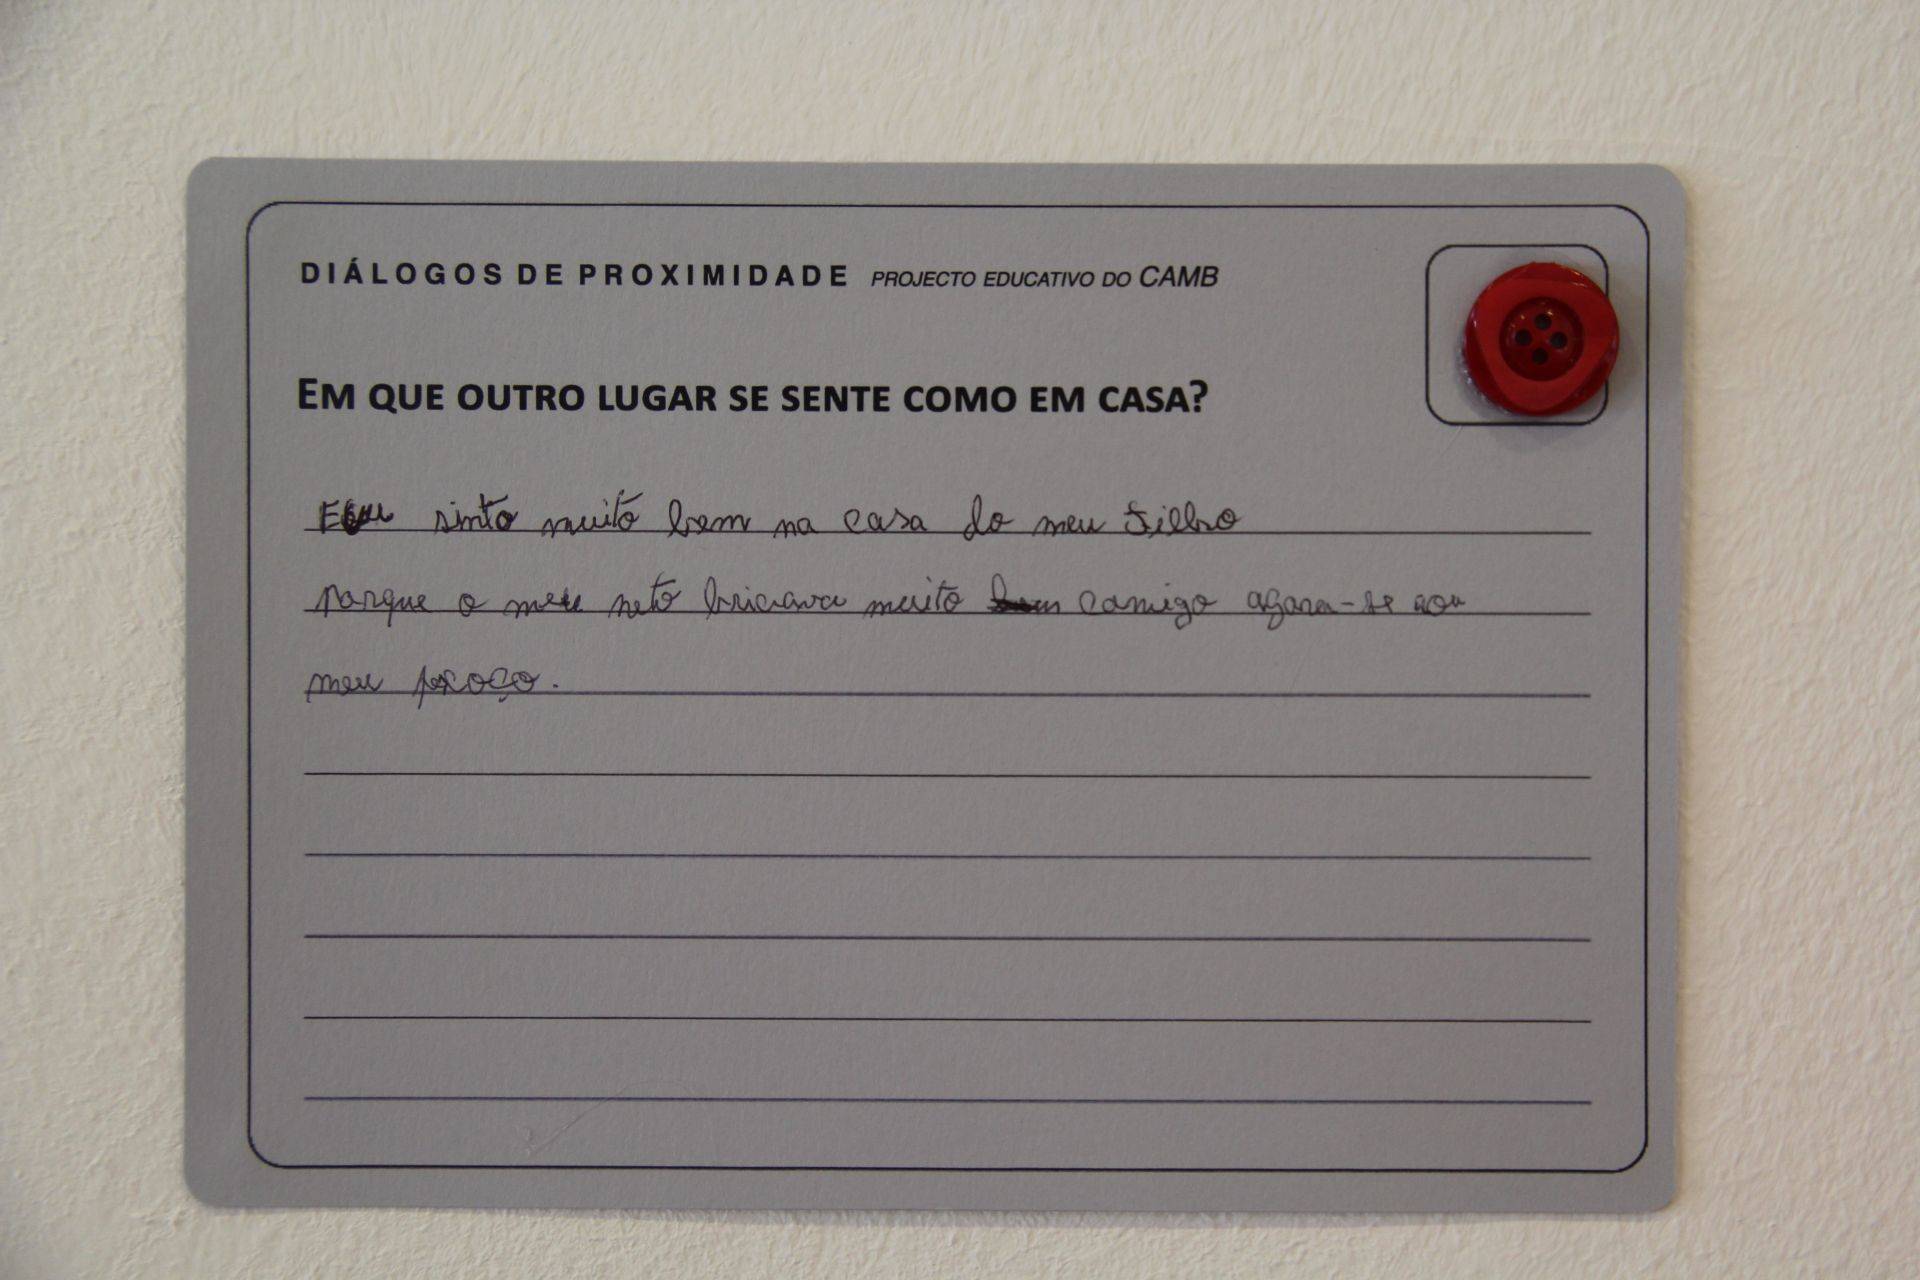 DIÁLOGOS DE PROXIMIDADE PROJECTO EDUCATIVO DO CAMB
EM QUE OUTRO LUGAR SE SENTE COMO EM CASA?
Eu sinto muito bem na casa do meu filho
porque o meu neto muito comigo agara-se aou
meu